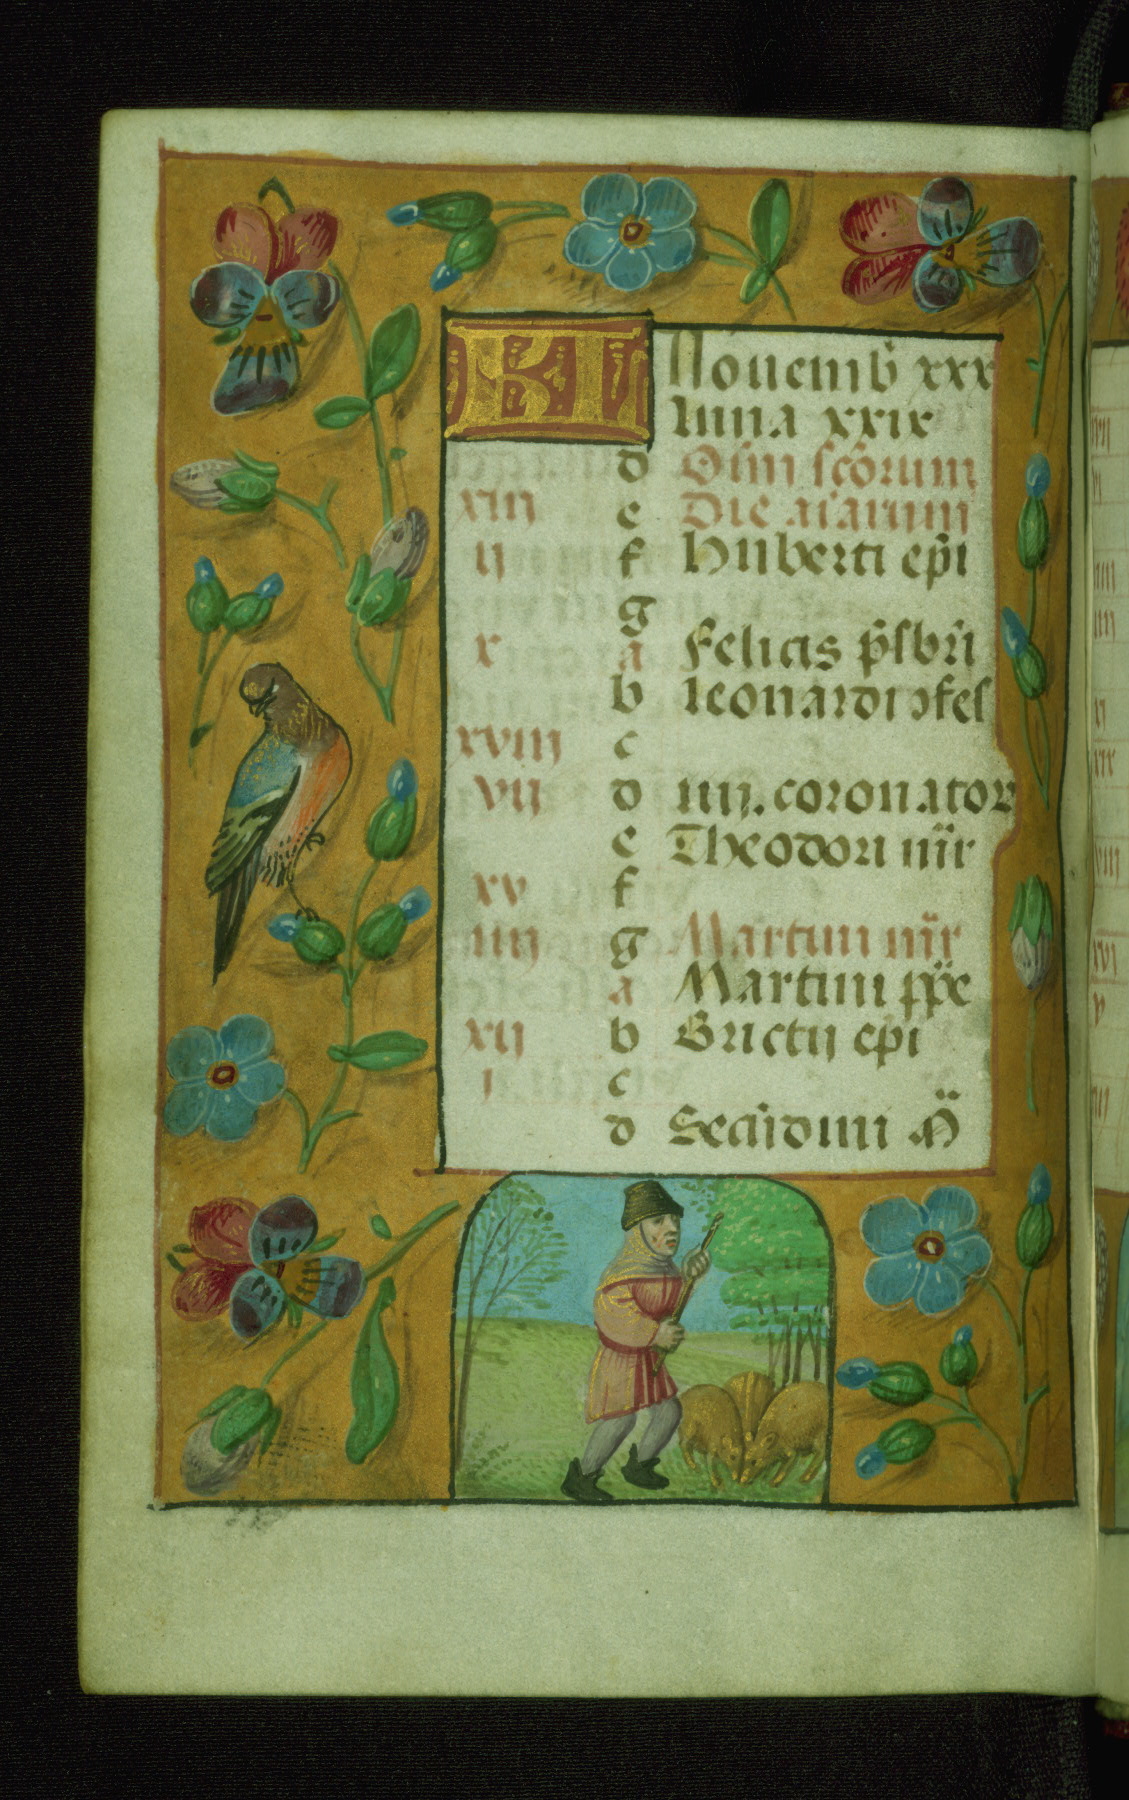 KL Nouemb̃ xxx
luna xxix
d Om̃ scõrum
xiii e Die aĩarum
ii f huberti epĩ
g
x a Felicis p̃sbrĩ
b leonardi ꝯfes
xviii c
vii d iiii. coronator
e Theodori m̃r
xv f
iiii g Martini m̃r
a Martini pp̃e
xii b Brictij epĩ
i c
d Secũdini M̃